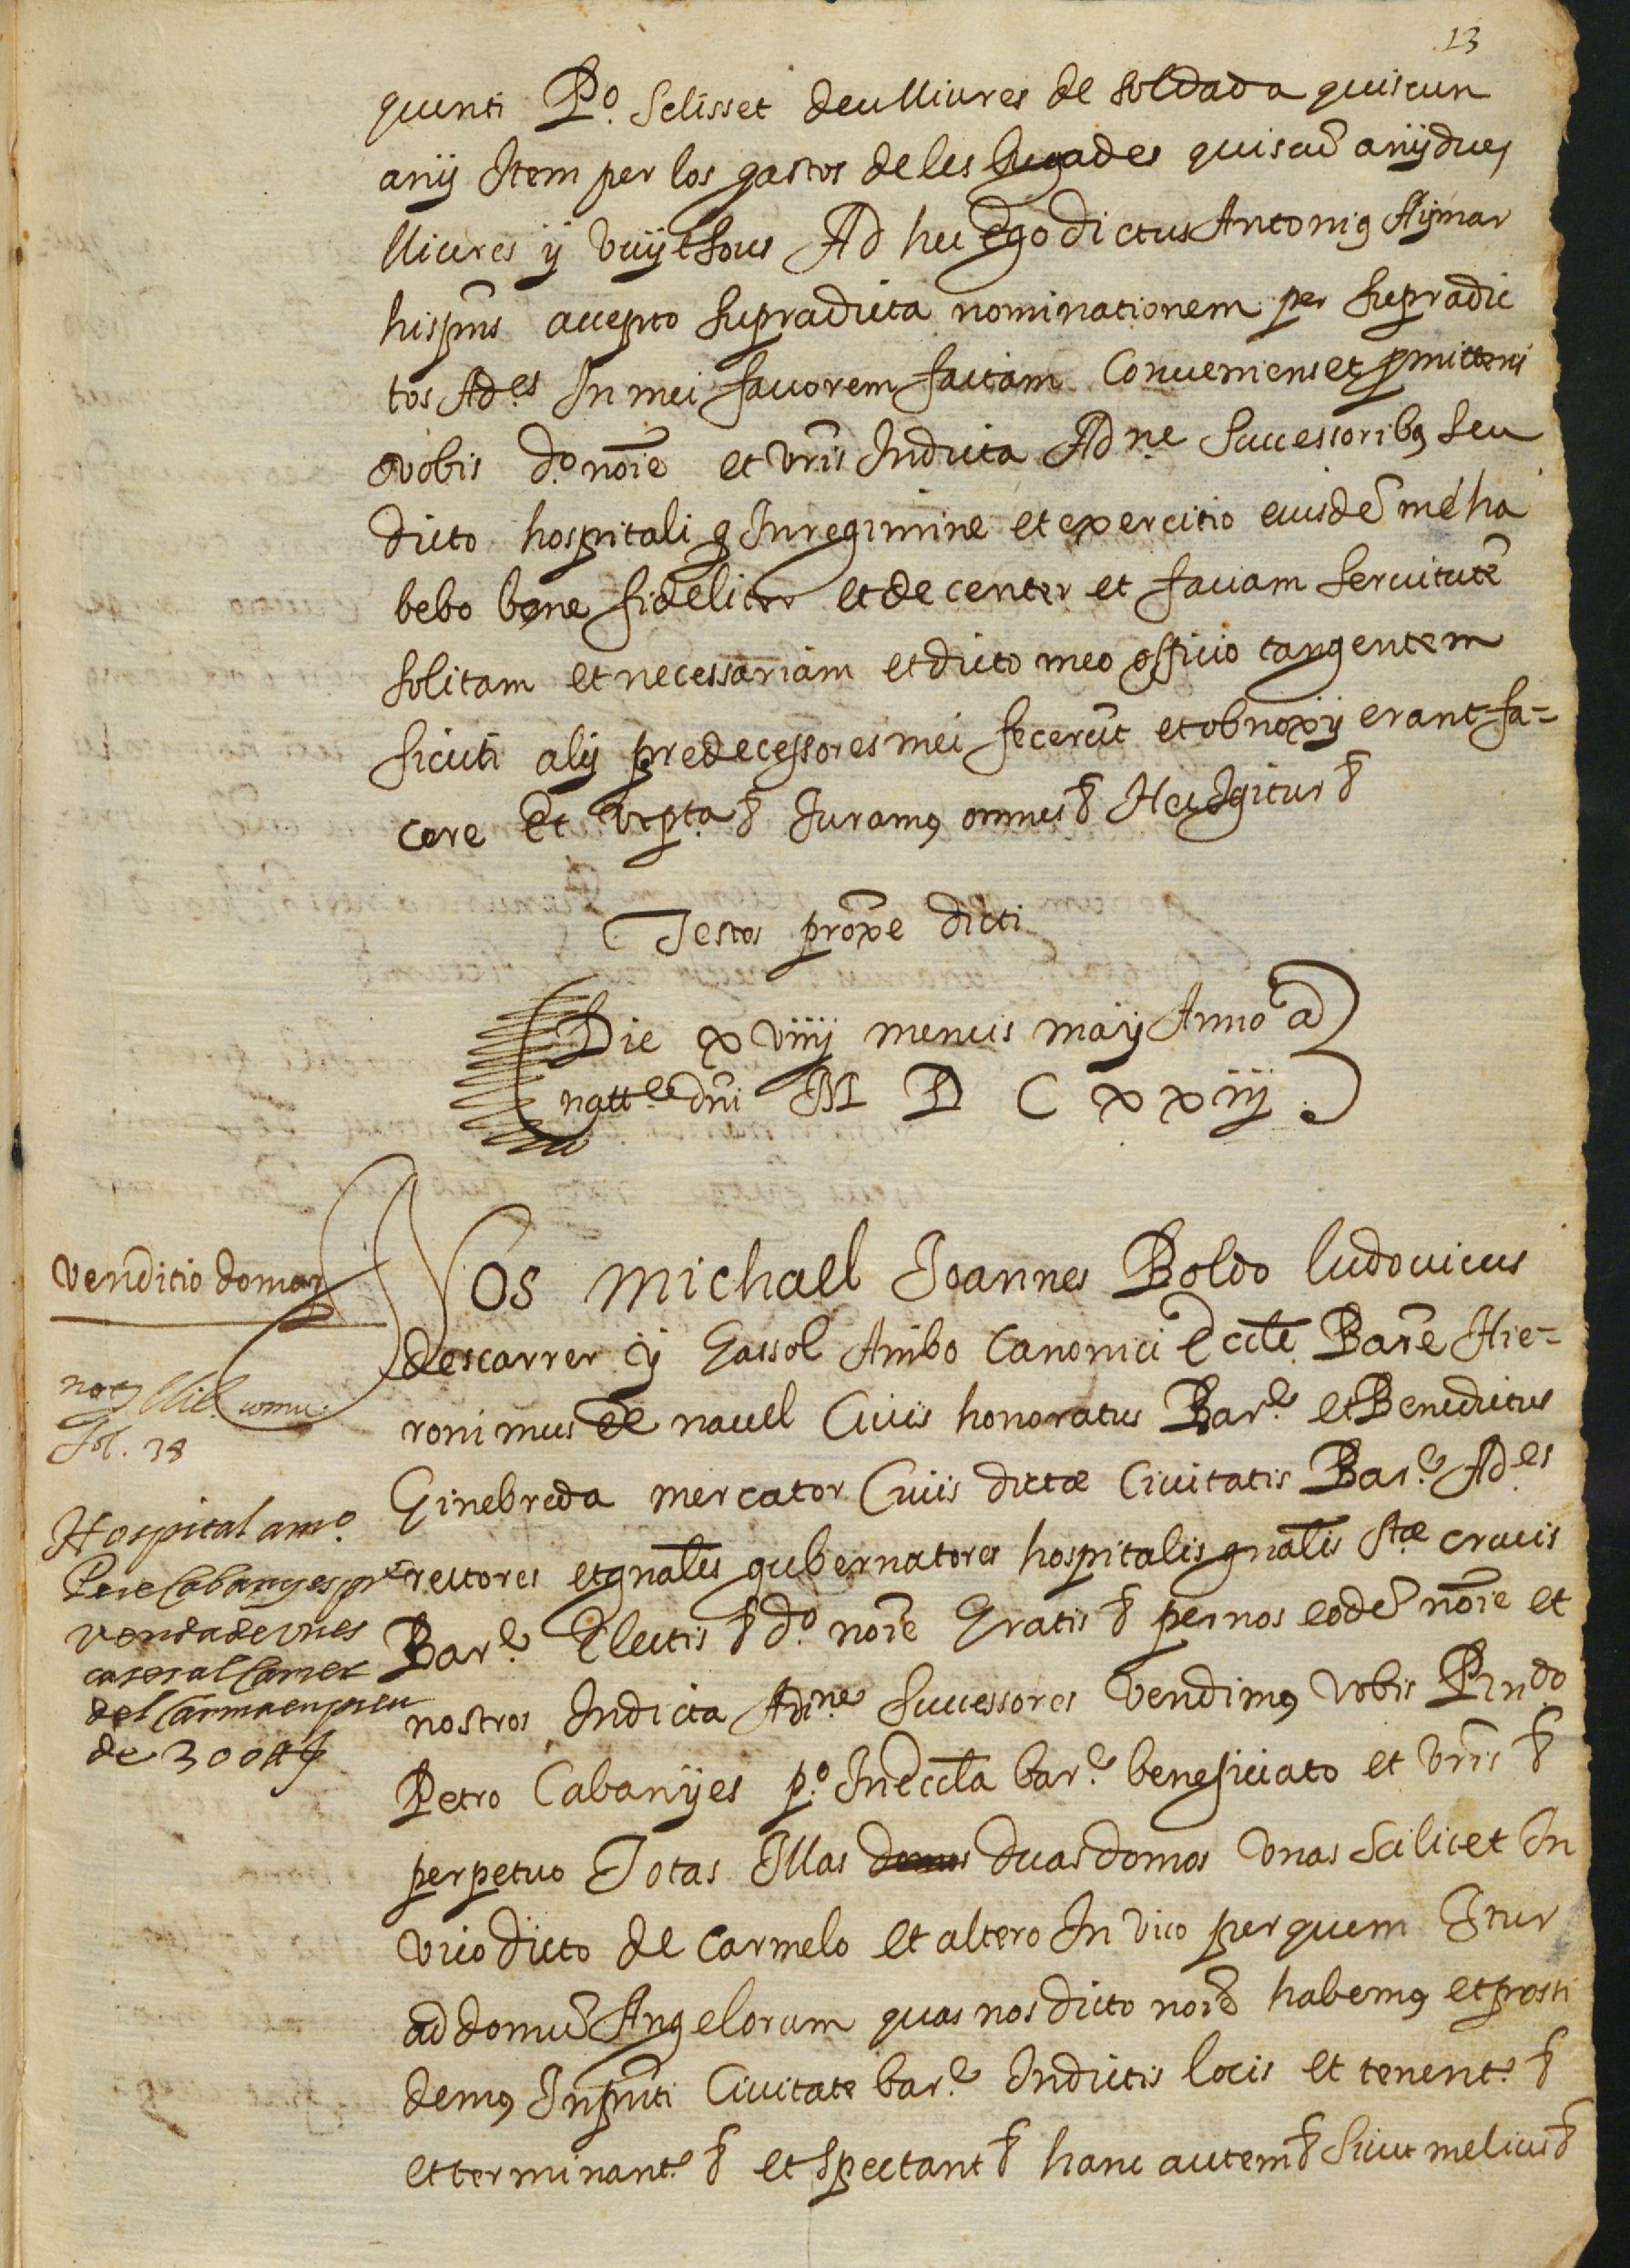 13
quinti Po. Selisset deu lliures de soldada quiscun
anÿ Item per los gastos de les bugades quiscũ anÿ dues
lliures ÿ vuÿt sous Ad hec Ego dictus Antonig Aÿmar
hispñs accepto supradicta nominationem per supradic
tos Ades In mei favorem factam Conveniens et pmittens
vobis do. nõie et vrĩs In dicta Adne Successoribg seu
dicto hospitali q In regimine et exercitio eiusdẽ me ha
bebo bene fideliter et decenter et faciam servitutẽ
solitam et necessariam et dicto meo officio tangentem
sicuti alÿ predecessores mei fecerũt et obnoxÿ erant fa=
cere Et Juramg omnes Hec Igitur
Testes proxẽ dicti
Die xviiij mencis maÿ Anno a
natte dñi M D C xxiij
Venditio domog
not
fol. 38
Hospital amo.
Pere Cabanyes pre
venda de unes
cases al Carrer
del Carma en preu
de 300
Nos Michael Joannes Boldo ludovicus
descarrer ÿ Gassol Ambo Canonici Eccłe Barẽ Hie=
ronimus de navel Civis honoratus Bare et Benedictus
Ginebreda mercator Civis dictæ Civitatis Bare Ades
rectores et gnãles gubernatores hospitalis gnãlis Stæ crucis
Bare Electis do. nõie Gratis per nos eodẽ nõie et
nostros In dicta Adne Successores Vendimg vobis Rndo
Petro Cabanÿes po. In Eccła bare beneficiato et vrĩs
perpetuo Totas Illas domos duas domos Unas scilicet In
vico dicto de Carmelo et altero In vico per quem Itur
ad domũ Angelorum quas nos dicto nõie habemg et possi
demg In pnti Civitate bare In dictis locis et tenent
et terminant et spectant hanc autem sicut melius